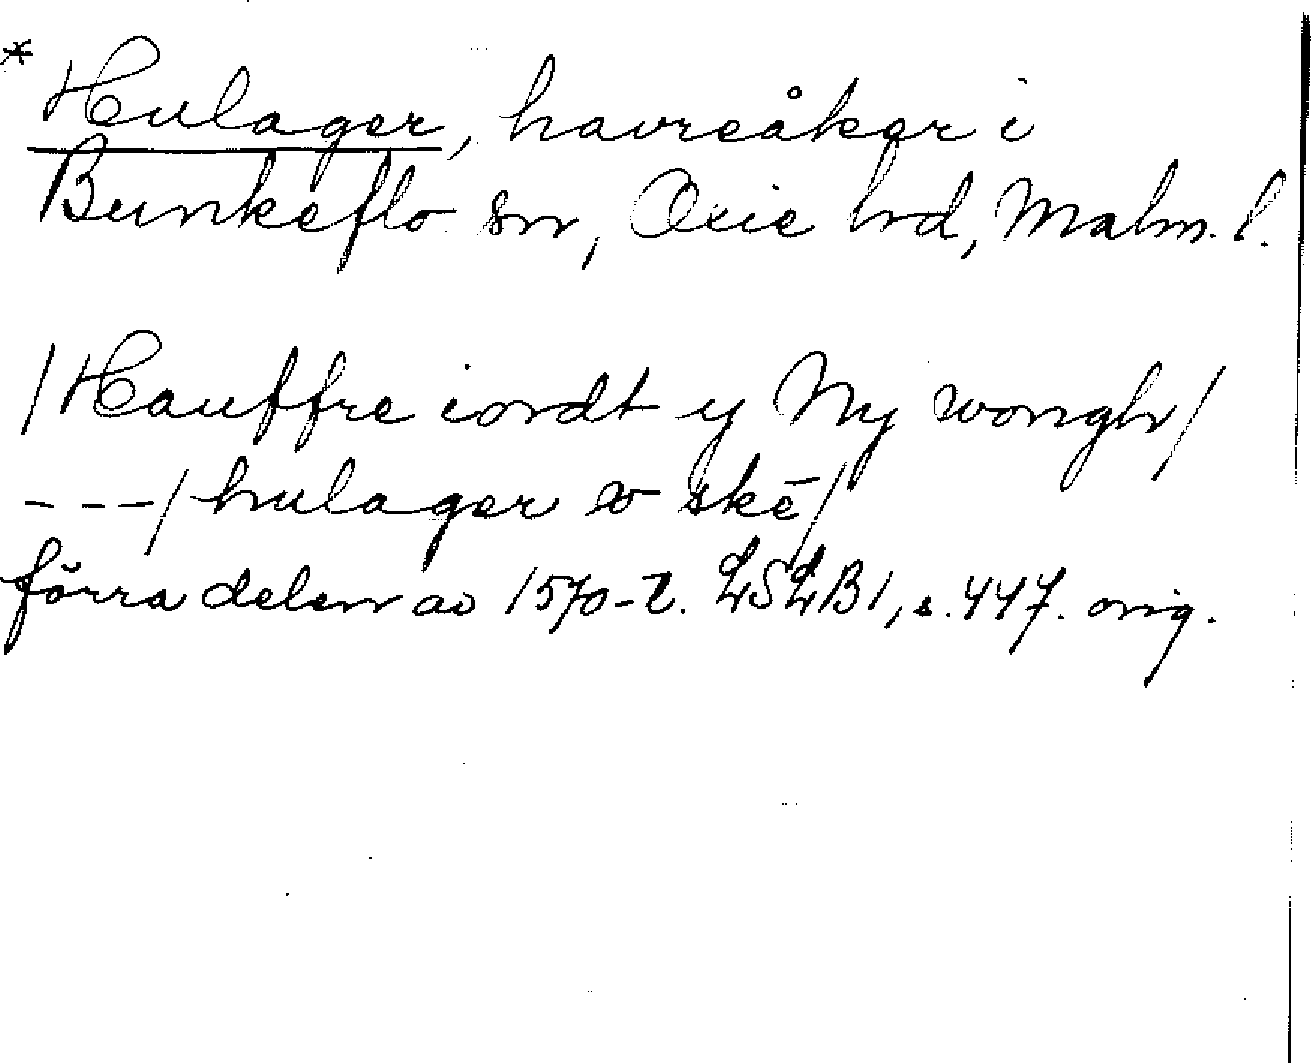 * Hulager, havreåker i
Bunkeflo sn, Oxie hd, Malm. l.
/Hauffre iordt y Ny wongh/
---/hulager w skē/
förra delen av 1570-t. LSLB1, s. 447. orig.